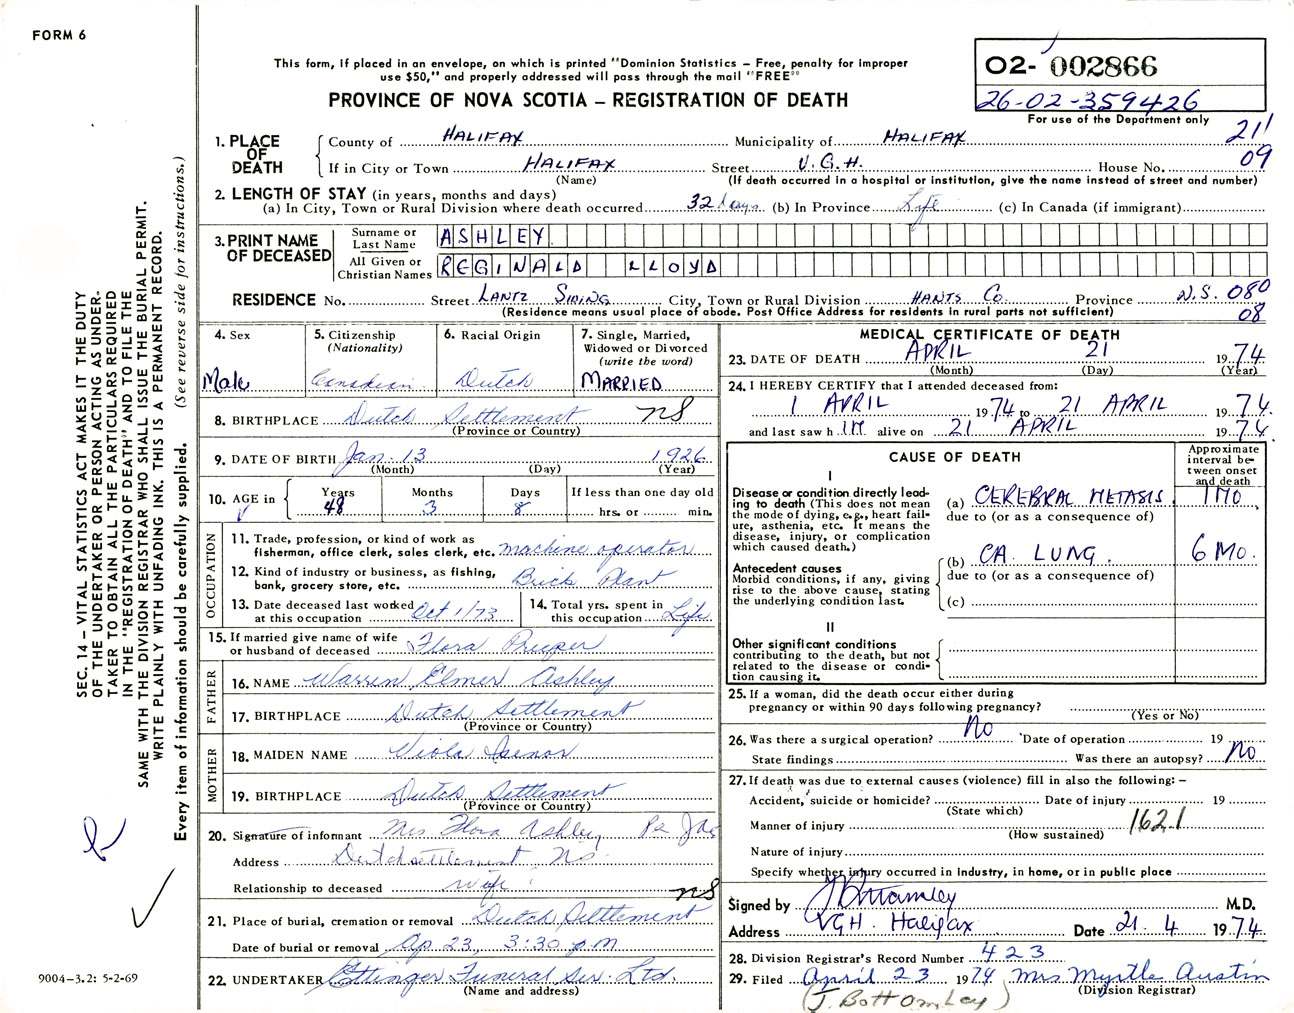 FORM 6
This form, if placed in an envelope, on which is printed "Dominion Statistics – Free, penalty for improper
use $50," and properly addressed will pass through the mail "FREE"
PROVINCE OF NOVA SCOTIA – REGISTRATION OF DEATH
02- 002866
26-02-359426
For use of the Department only
211
09
1. PLACE OF DEATH
County of HALIFAX Municipality of HALIFAX
If in City or Town HALIFAX Street V.G.H. House No.
(Name) (If death occurred in a hospital or institution, give the name instead of street and number)
2. LENGTH OF STAY (in years, months and days)
(a) In City, Town or Rural Division where death occurred 32 days (b) In Province Life (c) In Canada (if immigrant)
3. PRINT NAME OF DECEASED
Surname or Last Name ASHLEY
All Given or Christian Names REGINALD LLOYD
RESIDENCE No. Street LANTZ SIDING City, Town or Rural Division HANTS Co. Province N.S. 080
(Residence means usual place of abode. Post Office Address for residents in rural parts not sufficient) 08
4. Sex
Male
5. Citizenship
(Nationality)
Canadian
6. Racial Origin
Dutch
7. Single, Married,
Widowed or Divorced
(write the word)
MARRIED
8. BIRTHPLACE Dutch Settlement NS
(Province or Country)
9. DATE OF BIRTH Jan. 13 1926
(Month) (Day) (Year)
10. AGE in
Years Months Days If less than one day old
48 3 8 hrs. or min.
OCCUPATION
11. Trade, profession, or kind of work as
fisherman, office clerk, sales clerk, etc. machine operator
12. Kind of industry or business, as fishing,
bank, grocery store, etc. Brick Plant
13. Date deceased last worked
at this occupation Oct 1/73
14. Total yrs. spent in
this occupation Life
15. If married give name of wife
or husband of deceased Flora Preeper
FATHER
16. NAME Warren Elmer Ashley
17. BIRTHPLACE Dutch Settlement
(Province or Country)
MOTHER
18. MAIDEN NAME Viola Isenor
19. BIRTHPLACE Dutch Settlement
(Province or Country)
20. Signature of informant Mrs Flora Ashley
Address Dutch settlement NS.
Relationship to deceased wife
NS
21. Place of burial, cremation or removal Dutch Settlement
Date of burial or removal Ap 23, 3:30 pm
22. UNDERTAKER Ettinger Funeral Ser. Ltd.
(Name and address)
MEDICAL CERTIFICATE OF DEATH
23. DATE OF DEATH APRIL 21 1974
(Month) (Day) (Year)
24. I HEREBY CERTIFY that I attended deceased from:
1 APRIL 1974 to 21 APRIL 1974.
and last saw h im alive on 21 APRIL 1974.
CAUSE OF DEATH
Approximate
interval be-
tween onset
and death
I
Disease or condition directly lead-
ing to death (This does not mean
the mode of dying, e.g., heart fail-
ure, asthenia, etc. It means the
disease, injury, or complication
which caused death.)
(a) CEREBRAL METASIS. 1 MO
due to (or as a consequence of)
(b) CA. LUNG. 6 MO.
due to (or as a consequence of)
(c)
Antecedent causes
Morbid conditions, if any, giving
rise to the above cause, stating
the underlying condition last.
II
Other significant conditions
contributing to the death, but not
related to the disease or condi-
tion causing it.
25. If a woman, did the death occur either during
pregnancy or within 90 days following pregnancy?
(Yes or No)
26. Was there a surgical operation? No Date of operation 19
State findings Was there an autopsy? No
27. If death was due to external causes (violence) fill in also the following: –
Accident, suicide or homicide? Date of injury 19
(State which)
Manner of injury 1621
(How sustained)
Nature of injury
Specify whether injury occurred in industry, in home, or in public place
Signed by J Bottomley M.D.
Address VGH. Halifax Date 21. 4 1974.
28. Division Registrar's Record Number 423
29. Filed April 23 1974 Mrs Myrtle Austin
(Division Registrar)
(J. Bottomley)
SEC. 14 – VITAL STATISTICS ACT MAKES IT THE DUTY
OF THE UNDERTAKER OR PERSON ACTING AS UNDER-
TAKER TO OBTAIN ALL THE PARTICULARS REQUIRED
IN THE "REGISTRATION OF DEATH" AND TO FILE THE
SAME WITH THE DIVISION REGISTRAR WHO SHALL ISSUE THE BURIAL PERMIT.
WRITE PLAINLY WITH UNFADING INK. THIS IS A PERMANENT RECORD.
Every item of information should be carefully supplied. (See reverse side for instructions.)
9004-3.2: 5-2-69